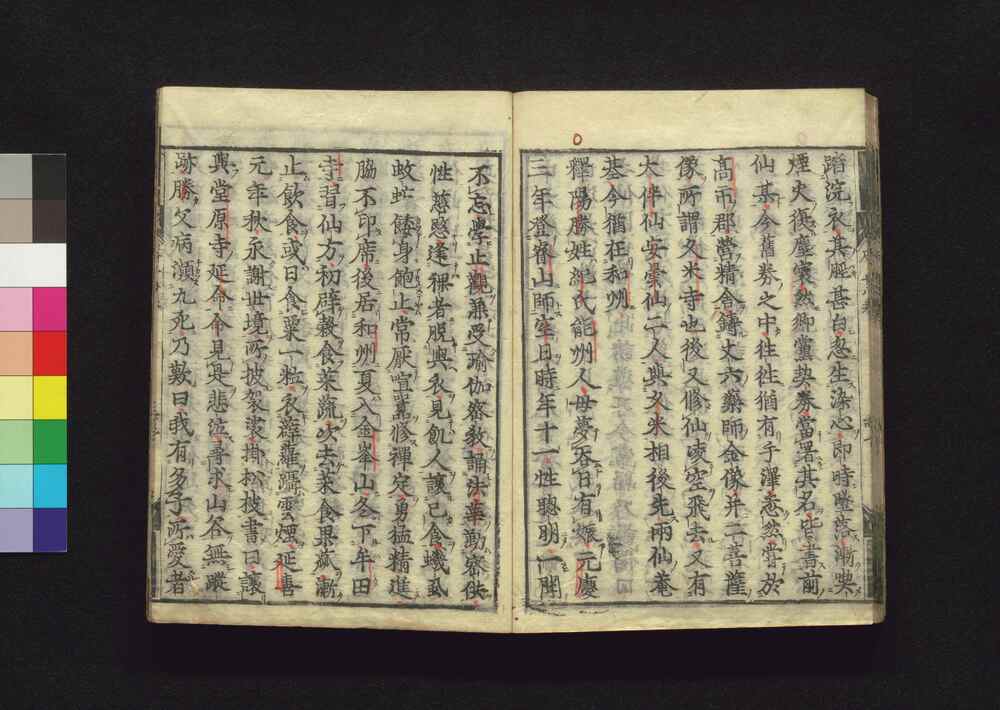 踏浣衣其脛甚白忽生染心即時墜落漸喫
煙火復塵寰然鄉黨契券當署其名皆書前
仙某今舊券之中往往猶有手澤志然嘗於
高市郡營精舍鑄丈六藥師金像并二菩薩
像所謂久米寺也後又修仙凌空飛去又有
大伴仙安曇仙二人與久米相後先兩仙菴
基今猶在和州
釋陽勝姓紀氏能州人母夢吞日有娠元慶
三年登睿山師生日時年十一性聰明一聞
不忘學止觀兼受瑜伽密教誦法華勤密供
性慈愍逢裸者脫與衣見飢人讓己食蟣虱
蚊虻饍身飽止常厭喧囂修禪定勇猛精進
脇不印席後居和州夏入金峯山冬下牟田
寺習仙方初辟穀食菜蔬次去菜食果蓏漸
止飲食或日食粟一粒衣薜蘿躡雲煙延喜
元年秋永謝世境所披袈裟掛松枝書曰讓
與堂原寺延命命見是悲泣尋求山谷無蹤
跡勝父病瀕九死乃歎曰我有多子所愛者